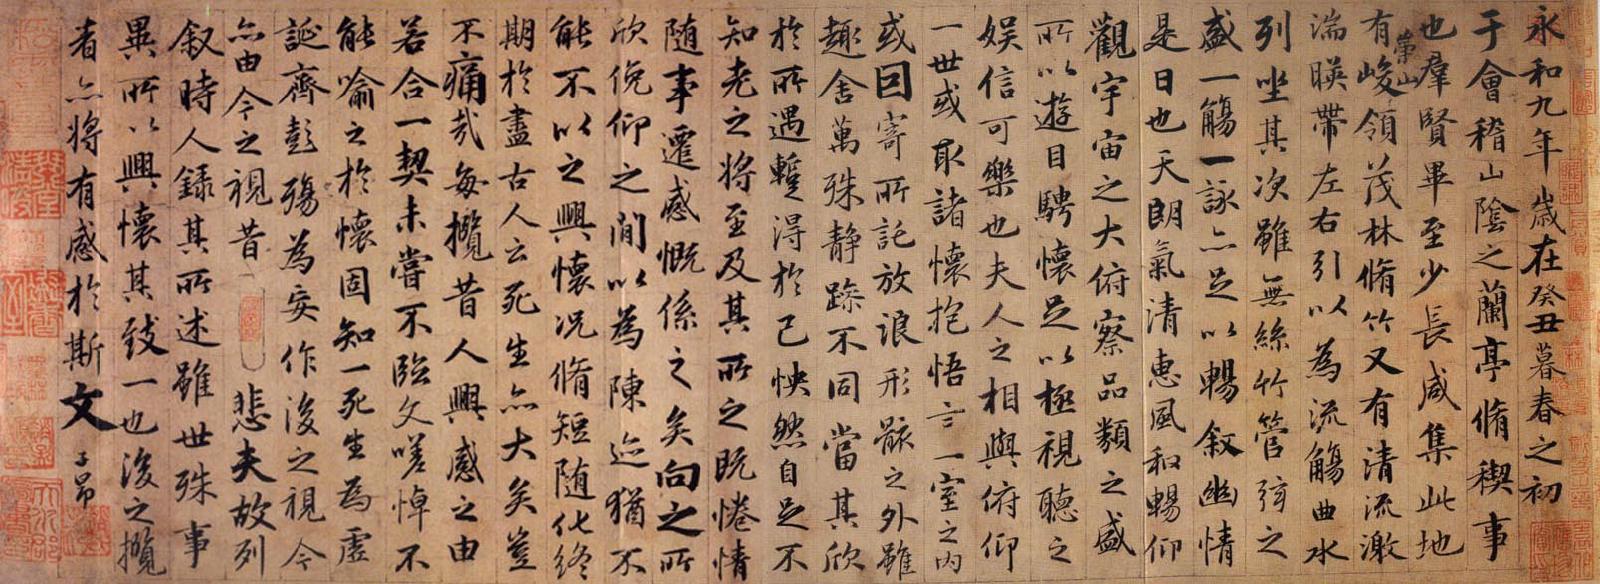 永和九年歲在癸丑暮春之初
于會稽山陰之蘭亭脩禊事
也羣賢畢至少長咸集此地
有崇山峻領茂林脩竹又有清流激
湍暎帶左右引以為流觴曲水
列坐其次雖無絲竹管弦之
盛一觴一詠亦足以暢叙幽情
是日也天朗氣清惠風和暢仰
觀宇宙之大俯察品類之盛
所以遊目騁懷足以極視聽之
娱信可樂也夫人之相與俯仰
一世或取諸懷抱悟言一室之内
或因寄所託放浪形骸之外雖
趣舍萬殊静躁不同當其欣
於所遇蹔得於己怏然自足不
知老之將至及其所之既惓情
随事遷感慨係之矣向之所
欣俛仰之間以為陳迹猶不
能不以之興懷况脩短随化終
期於盡古人云死生亦大矣豈
不痛哉每攬昔人興感之由
若合一契未嘗不臨文嗟悼不
能喻之於懷固知一死生為虛
誕齊彭殤為妄作後之視今
亦由今之視昔悲夫故列
叙時人錄其所述雖世殊事
異所以興懷其致一也後之攬
者亦將有感於斯文子昂